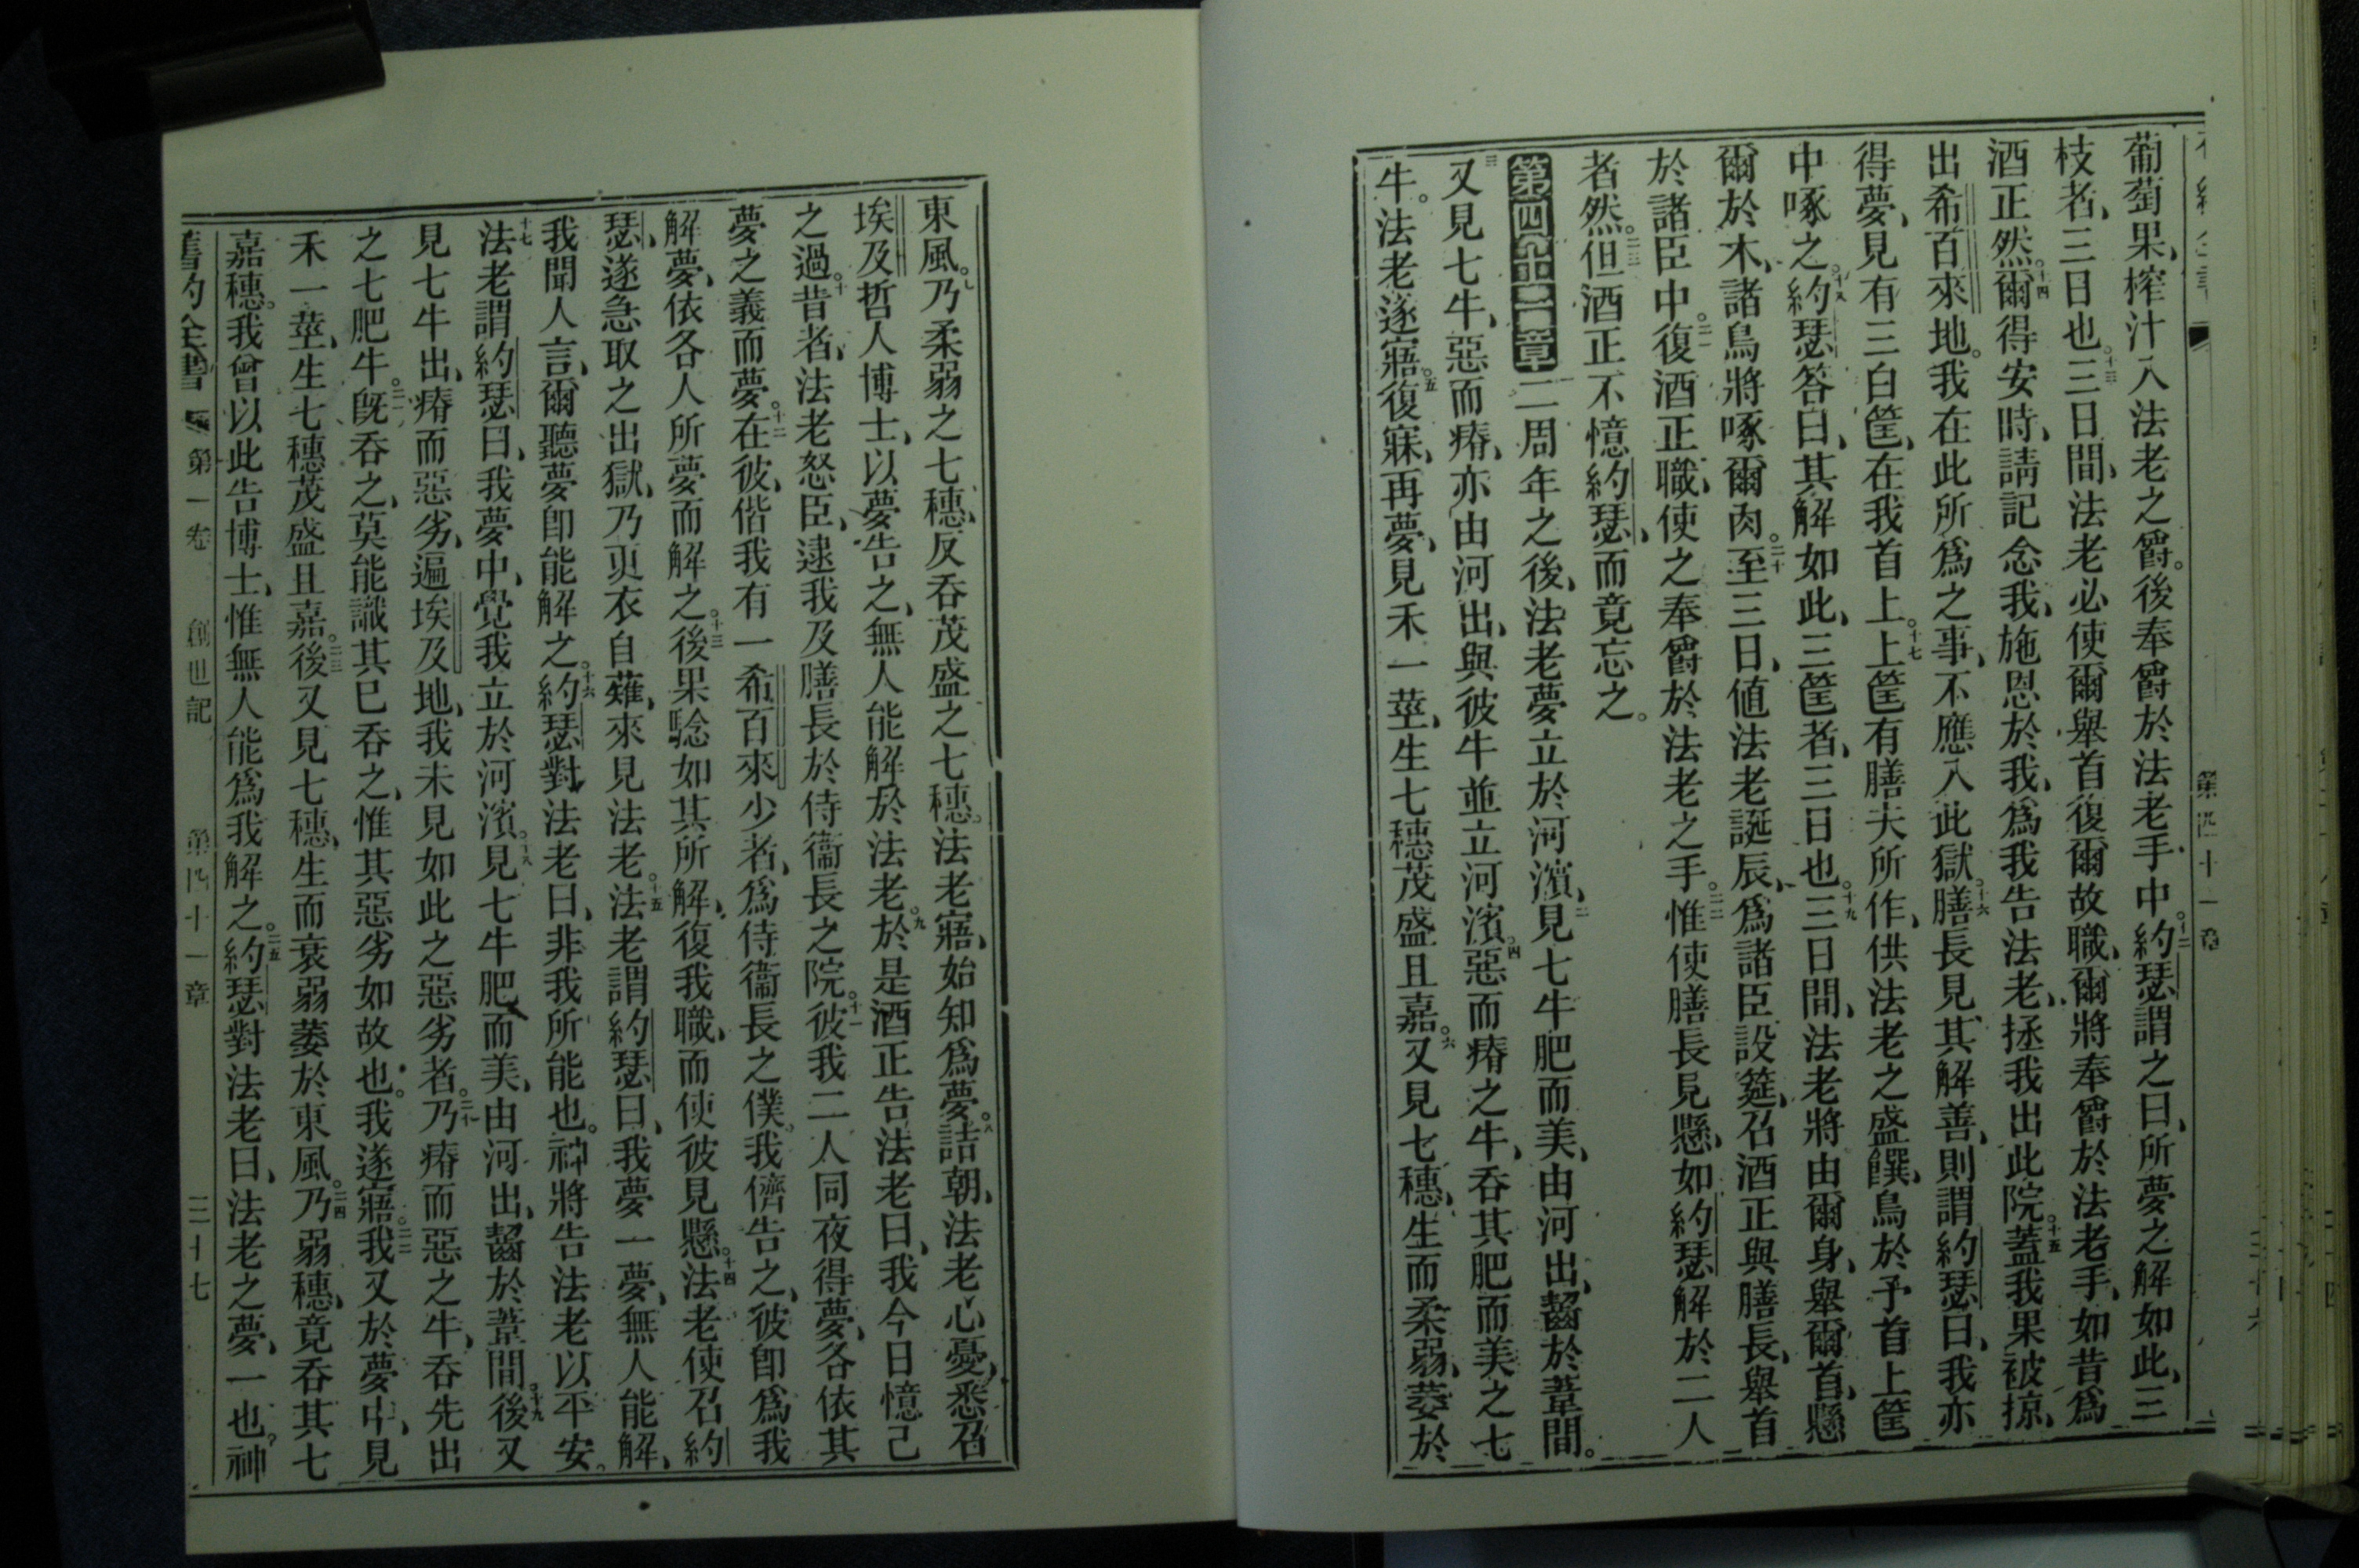 葡萄果、榨汁入法老之爵。後奉爵於法老手中。十二約瑟謂之曰、所夢之解如此、三
枝者、三日也。十三三日間、法老必使爾舉首、復爾故職、爾將奉爵於法老手、如昔爲
酒正然。十四爾得安時、請記念我、施恩於我、爲我告法老、拯我出此院。十五蓋我果被掠、
出希百來地。我在此所爲之事、不應入此獄。十六膳長見其解善、則謂約瑟曰、我亦
得夢、見有三白筐、在我首上。十七上筐有膳夫所作、供法老之盛饌、鳥於予首上筐
中啄之。十八約瑟答曰、其解如此、三筐者、三日也。十九三日間、法老將由爾身、舉爾首、懸
爾於木、諸鳥將啄爾肉。二十至三日、値法老誕辰、爲諸臣設筵、召酒正與膳長、舉首
於諸臣中。二一復酒正職、使之奉爵於法老之手。二二惟使膳長見懸、如約瑟解於二人
者然。二三但酒正不憶約瑟、而竟忘之。
第四十一章 二周年之後、法老夢立於河濱、二見七牛肥而美、由河出、齧於葦間。
三又見七牛、惡而瘠、亦由河出、與彼牛並立河濱。四惡而瘠之牛、吞其肥而美之七
牛。法老遂寤。五復寐、再夢、見禾一莖、生七穗茂盛且嘉。六又見七穗、生而柔弱、萎於
第四十一章
東風。七乃柔弱之七穗、反吞茂盛之七穗。法老寤、始知爲夢。八詰朝、法老心憂、悉召
埃及哲人博士、以夢告之、無人能解於法老。九於是酒正告法老曰、我今日憶己
之過。十昔者、法老怒臣、逮我及膳長於侍衞長之院。十一彼我二人同夜得夢、各依其
夢之義而夢。十二在彼、偕我有一希百來少者、爲侍衞長之僕。我儕告之、彼卽爲我
解夢、依各人所夢而解之。十三後果騐如其所解、復我職、而使彼見懸。十四法老使召約
瑟、遂急取之出獄、乃更衣自薙、來見法老。十五法老謂約瑟曰、我夢一夢、無人能解、
我聞人言、爾聽夢卽能解之。十六約瑟對法老曰、非我所能也。神將告法老以平安。
十七法老謂約瑟曰、我夢中、覺我立於河濱。十八見七牛肥而美、由河出、齧於葦間。十九後又
見七牛出、瘠而惡劣、遍埃及地、我未見如此之惡劣者。二十乃瘠而惡之牛、吞先出
之七肥牛。二一旣吞之、莫能識其已吞之、惟其惡劣如故也。我遂寤。二二我又於夢中、見
禾一莖、生七穗茂盛且嘉。二三後又見七穗、生而衰弱萎於東風。二四乃弱穗、竟吞其七
嘉穗。我曾以此告博士、惟無人能爲我解之。二五約瑟對法老曰、法老之夢、一也。神
舊約全書 第一卷 創世記 第四十一章 三十七